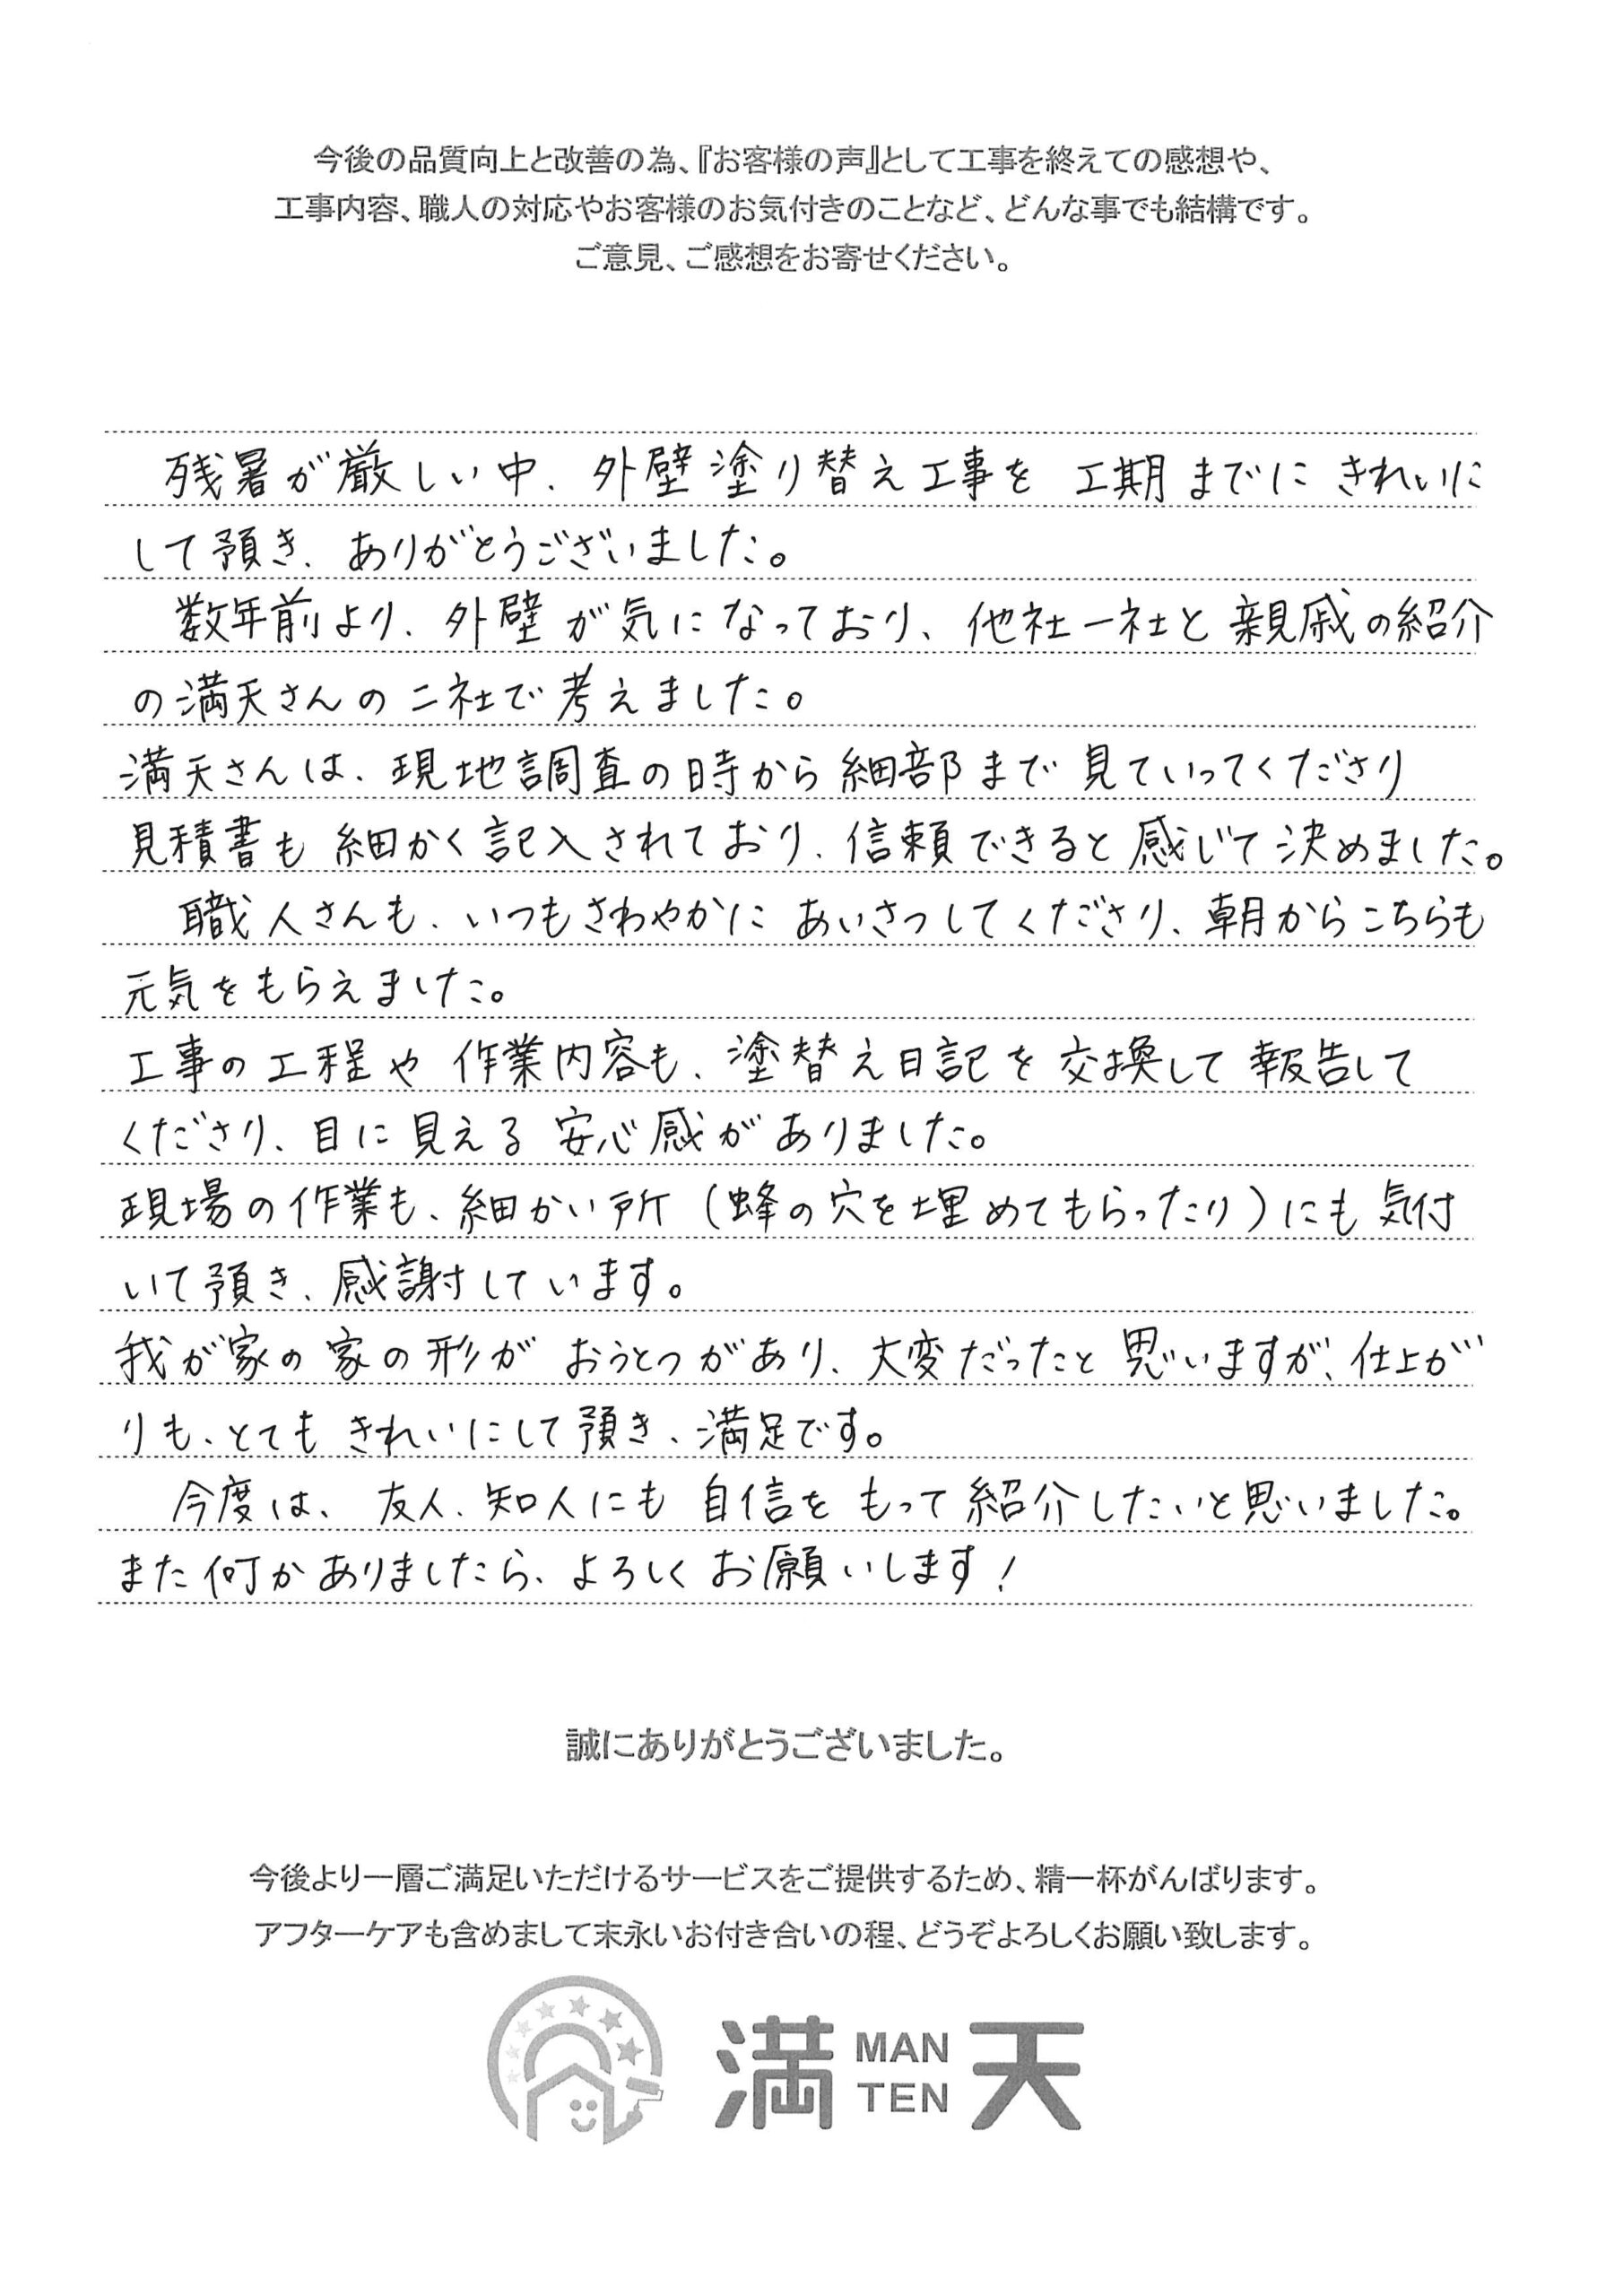 今後の品質向上と改善の為、『お客様の声』として工事を終えての感想や、
工事内容、職人の対応やお客様のお気付きのことなど、どんな事でも結構です。
ご意見、ご感想をお寄せください。
残暑が厳しい中、外壁塗り替え工事を 工期までに きれいに
して預き、ありがとうございました。
数年前より、外壁が気になっており、他社一社と親戚の紹介
の満天さんの二社で考えました。
満天さんは、現地調査の時から細部まで見ていってくださり
見積書も細かく記入されており、信頼できると感じて決めました。
職人さんも、いつもさわやかに あいさつしてくださり、朝からこちらも
元気をもらえました。
工事の工程や作業内容も、塗替え日記を交換して報告して
くださり、目に見える安心感がありました。
現場の作業も、細かい所(蜂の穴を埋めてもらったり)にも気付
いて預き、感謝しています。
我が家の家の形が おうとつがあり、大変だったと思いますが、仕上が
りも、とても きれいにして預き、満足です。
今度は、友人、知人にも自信をもって紹介したいと思いました。
また何かありましたら、よろしくお願いします!
誠にありがとうございました。
今後より一層ご満足いただけるサービスをご提供するため、精一杯がんばります。
アフターケアも含めまして末永いお付き合いの程、どうぞよろしくお願い致します。
満 MAN TEN 天